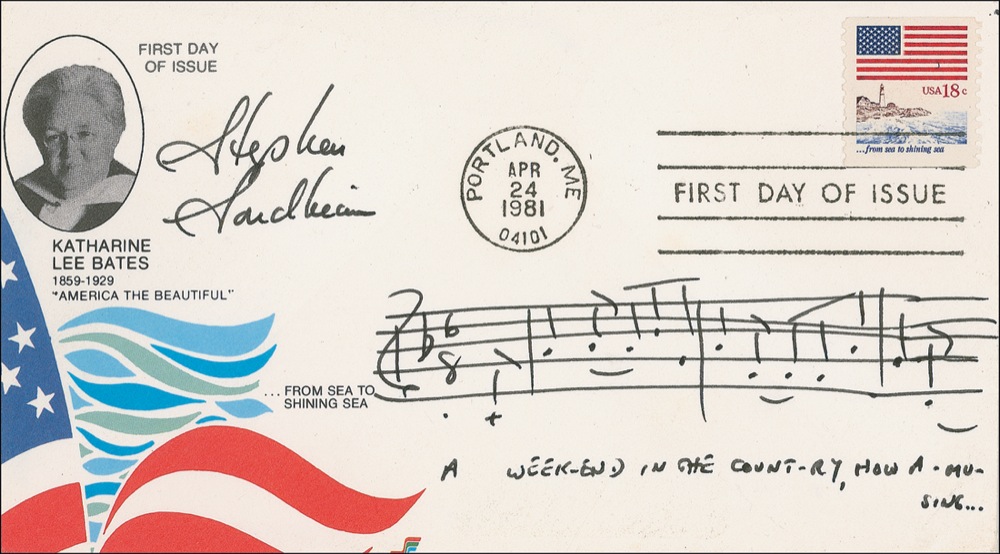 FIRST DAY
OF ISSUE
Stephen
Sondheim
KATHARINE
LEE BATES
1859-1929
"AMERICA THE BEAUTIFUL"
...FROM SEA TO
SHINING SEA
PORTLAND, ME
APR
24
1981
04101
USA 18c
...from sea to shining sea
FIRST DAY OF ISSUE
6
8
A WEEK-END IN THE COUNT-RY, HOW A-MU-
SING...